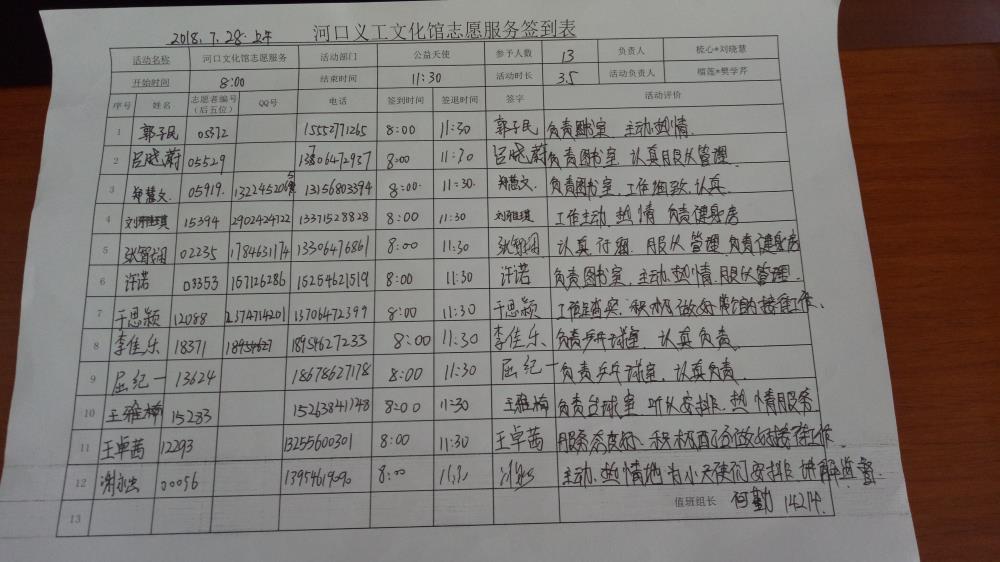 2018.7.28.上午 河口义工文化馆志愿服务签到表
活动名称 河口文化馆志愿服务 活动部门 公益天使 参予人数 13 负责人 梳心*刘晓慧
开始时间 8:00 结束时间 11:30 活动时长 3.5 活动负责人 榴莲*樊学芹
序号 姓名 志愿者编号(后五位) QQ号 电话 签到时间 签退时间 签字 活动评价
1 郭子民 05372 15552771265 8:00 11:30 郭子民 负责图书室 主动.热情.
2 吕晓蔚 05529 13806472937 8:00 11:30 吕晓蔚 负责图书室.认真服从管理.
3 郑慧文 05919. 13156803394 8:00. 11:30. 郑慧文. 负责图书室.工作细致.认真.
4 刘雅琪 15394 2902424722 13371528828 8:00 11:30 刘雅琪 工作主动.热情 负责健身房
5 02235 1784631174 13306476861 8:00 11:30 认真仔细.服从管理.负责健身房
6 许诺 03353 157126286 15254621519 8:00 11:30 许诺 负责图书室.主动.热情.服从管理.
7 于思颖 12088 2374714201 13706472399 8:00 11:30 于思颖 工作踏实.积极做好 的接待工作.
8 李佳乐 18371 18954627233 8:00 11:30 李佳乐 负责乒乓球室.认真负责.
9 屈纪一 13624 18678627178 8:00 11:30 屈纪一 负责乒乓球室.认真负责.
10 王雅楠 15283 15263841748 8:00 11:30 王雅楠 负责台球室 听从安排.热情服务
11 王卓茜 12293 13255600301 8:00 11:30 王卓茜 服务态度好.积极配合做好接待工作.
12 谢 00056 8:00 主动.热情地为小天使们安排 讲解监督.
13 值班组长 何勤 14214